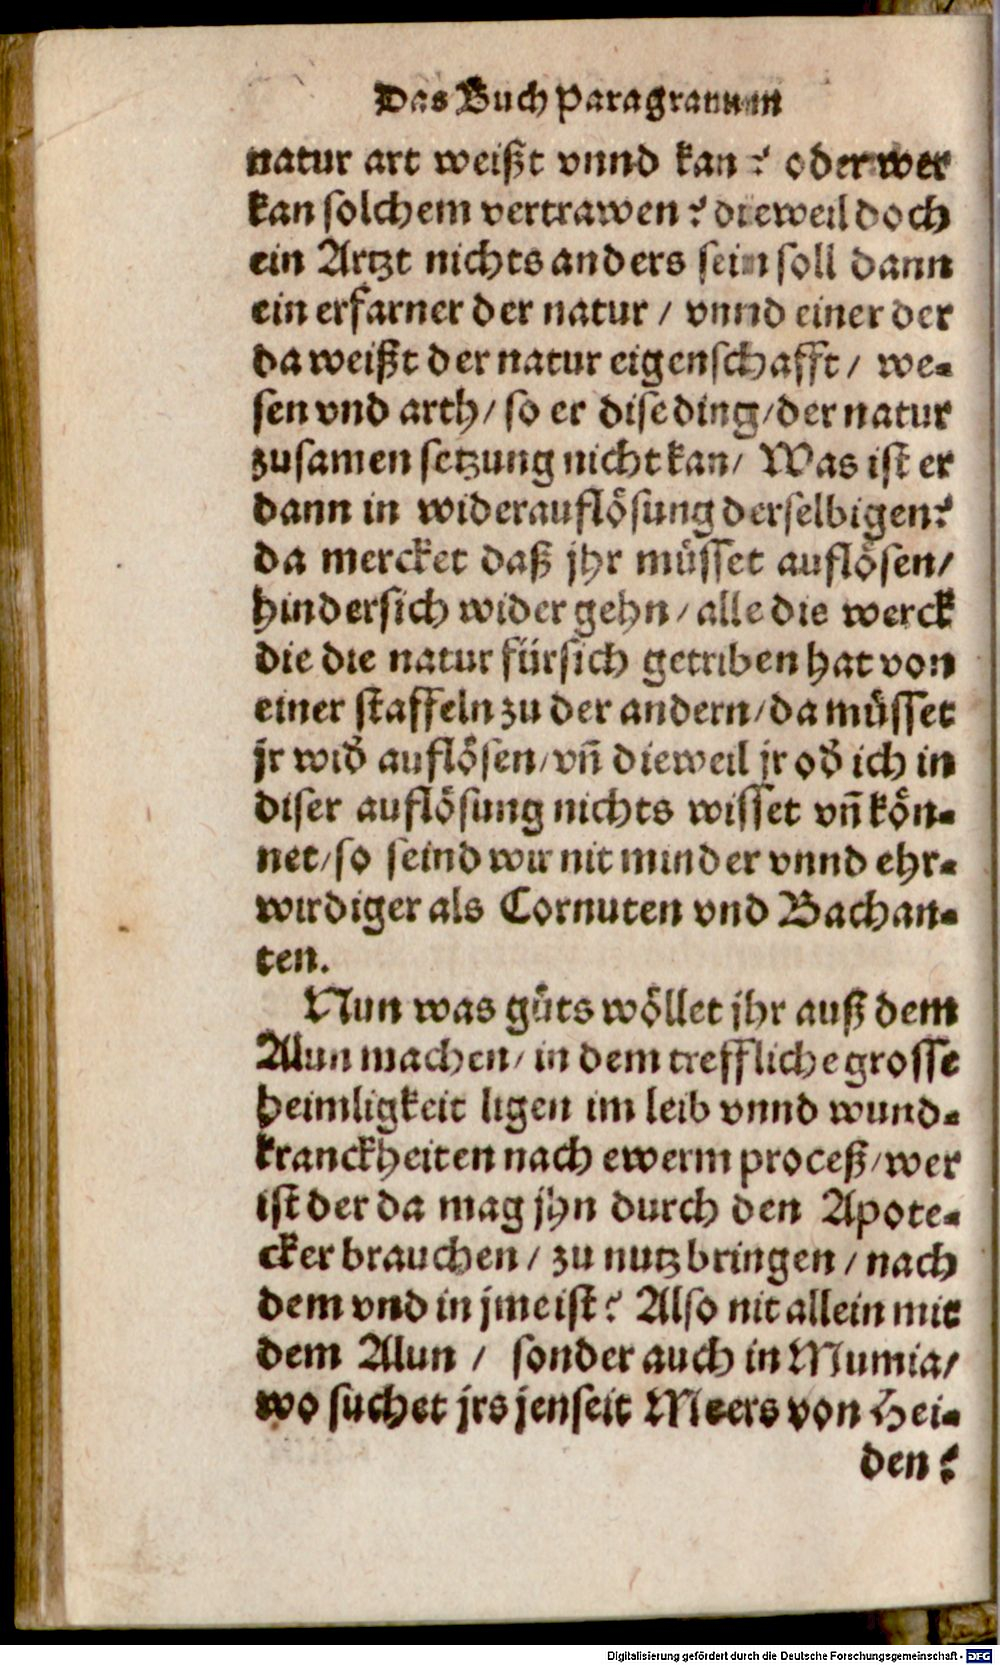 Das Buch Paragranum
natur art weißt vnnd kan? oder wer
kan solchem vertrawen? dieweil doch
ein Artzt nichts anders sein soll dann
ein erfarner der natur / vnnd einer der
da weißt der natur eigenschafft / we-
sen vnd arth / so er dise ding / der natur
zusamen setzung nicht kan / Was ist er
dann in widerauflösung derselbigen?
da mercket daß jhr müsset auflösen /
hindersich wider gehn / alle die werck
die die natur fürsich getriben hat von
einer staffeln zu der andern / da müsset
jr wid̄ auflösen / vñ dieweil jr od̄ ich in
diser auflösung nichts wisset vñ kön-
net / so seind wir nit minder vnnd ehr-
wirdiger als Cornuten vnd Bachan-
ten.
Nun was gůts wöllet jhr auß dem
Alun machen / in dem treffliche grosse
heimligkeit ligen im leib vnnd wund-
kranckheiten nach ewerm proceß / wer
ist der da mag jhn durch den Apote-
cker brauchen / zu nutz bringen / nach
dem vnd in jme ist? Also nit allein mit
dem Alun / sonder auch in Mumia /
wo suchet jrs jenseit Meers von Hei-
den?
Digitalisierung gefördert durch die Deutsche Forschungsgemeinschaft - DFG